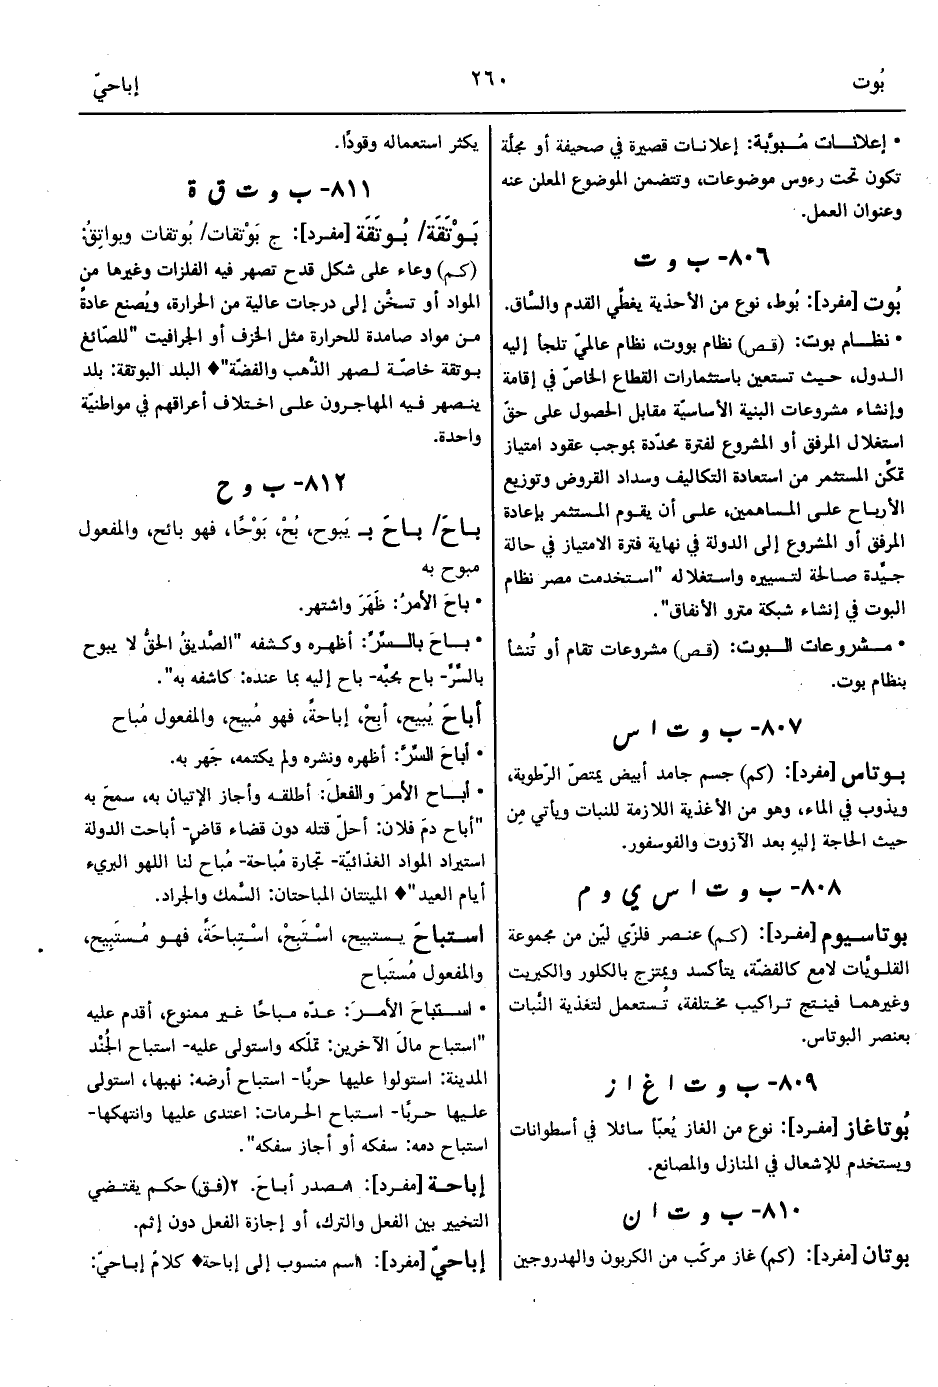 بُوت
٢٦٠
إباحيّ
• إعلانـــات مُـبـوَّبة: إعلانـات قصيرة في صحيفة أو مجلَّة
تكون تحت رءوس موضوعات، وتتضمن الموضوع المعلن عنه
وعنوان العمل.
٨٠٦- ب و ت
بُوت [مفرد]: بُوط، نوع من الأحذية يغطِّي القدم والسَّاق.
• نظـــام بوت: (قـص) نظام بووت، نظام عالميّ تلجأ إليه
الـدول، حيـث تستعين باستثمارات القطاع الخاصّ في إقامة
وإنشاء مشروعات البنية الأساسيّة مقابل الحصول على حقّ
استغلال المرفق أو المشروع لفترة محدّدة بموجب عقود امتياز
تمكِّن المستثمر من استعادة التكاليف وسداد القروض وتوزيع
الأربـاح علـى المـساهمين، علـى أن يقـوم المـستثمر بإعادة
المرفق أو المشروع إلى الدولة في نهاية فترة الامتياز في حالة
جـيِّدة صـالحة لتـسييره واستغلاله "استخدمت مصر نظام
البوت في إنشاء شبكة مترو الأنفاق".
• مـــشروعات الـــبوت: (قـص) مشروعات تقام أو تُنشأ
بنظام بوت.
٨٠٧- ب و ت ا س
بوتاس [مفرد]: (كم) جسم جامد أبيض يمتصّ الرّطوبة،
ويذوب في الماء، وهو من الأغذية اللازمة للنبات ويأتي مِن
حيث الحاجة إليهِ بعد الآزوت والفوسفور.
٨٠٨- ب و ت ا س ي و م
بوتاسيوم [مفـرد]: (كـم) عنـصر فلزّي ليّن من مجموعة
القلـويَّات لامع كالفضّة، يتأكسد ويمتزج بالكلور والكبريت
وغيرهمـا فينـتج تـراكيب مخـتلفة، تُستعمل لتغذية النَّبات
بعنصر البوتاس.
٨٠٩- ب و ت ا غ ا ز
بُوتاغاز [مفـرد]: نوع من الغاز يُعبَّأ سائلا في أسطوانات
ويستخدم للإشعال في المنازل والمصانع.
٨١٠- ب و ت ا ن
بوتان [مفرد]: (كم) غاز مركّب من الكربون والهدروجين
يكثر استعماله وقودًا.
٨١١- ب و ت ق ة
بَـوْتَقَة/ بُـوتَقَة [مفـرد]: ج بَوْتقات/ بُوتقات وبواتِقُ:
(كـم) وعاء على شكل قدح تصهر فيه الفلزات وغيرها من
المواد أو تسخَّن إلى درجات عالية من الحرارة، ويُصنع عادةً
مـن مواد صامدة للحرارة مثل الخزف أو الجرافيت "للصّائغ
بـوتقة خاصّـة لـصهر الذَّهب والفضّة"♦ البلد البوتقة: بلد
ينـصهر فـيه المهاجـرون علـى اخـتلاف أعراقهم في مواطنيّة
واحدة.
٨١٢- ب و ح
بـاحَ/ باحَ بـ يَبوح، بُحْ، بَوْحًا، فهو بائح، والمفعول
مبوح به
• باحَ الأمرُ: ظَهَرَ واشتهر.
• بـاحَ بالـسِّرِّ: أظهـره وكـشفه "الصَّديقُ الحقُّ لا يبوح
بالسِّرِّ- باح بحبِّه- باح إليه بما عنده: كاشفه به".
أباحَ يُبيح، أَبِحْ، إباحةً، فهو مُبيح، والمفعول مُباح
• أباحَ السِّرَّ: أظهره ونشره ولم يكتمه، جَهر به.
• أبـــاح الأمرَ والفعلَ: أطلقـه وأجاز الإتيان به، سمحَ به
"أباح دمَ فلان: أحلّ قتله دون قضاء قاضٍ- أباحت الدولة
استيراد المواد الغذائيّة- تجارة مُباحة- مُباح لنا اللهو البريء
أيام العيد"♦ الميتتان المباحتان: السَّمك والجراد.
اسـتباحَ يـستبيح، اسْـتَبِحْ، اسْـتِباحَةً، فهـو مُـستَبِيح،
والمفعول مُستَباح
• اســـتباحَ الأمـرَ: عـدّه مـباحًا غـير ممنوع، أقدم عليه
"استباح مالَ الآخرين: تملّكه واستولى عليه- استباح الجُنْد
المدينة: استولوا عليها حربًا- استباح أرضه: نهبها، استولى
علـيها حـربًا- استـباح الحـرمات: اعتدى عليها وانتهكها-
استباح دمه: سفكه أو أجاز سفكه".
إباحـة [مفـرد]: ١مـصدر أباحَ. ٢(فق) حكـم يقتـضي
التخيير بين الفعل والترك، أو إجازة الفعل دون إثم.
إباحيّ [مفرد]: ١اسم منسوب إلى إباحة♦ كلامٌ إباحيّ: